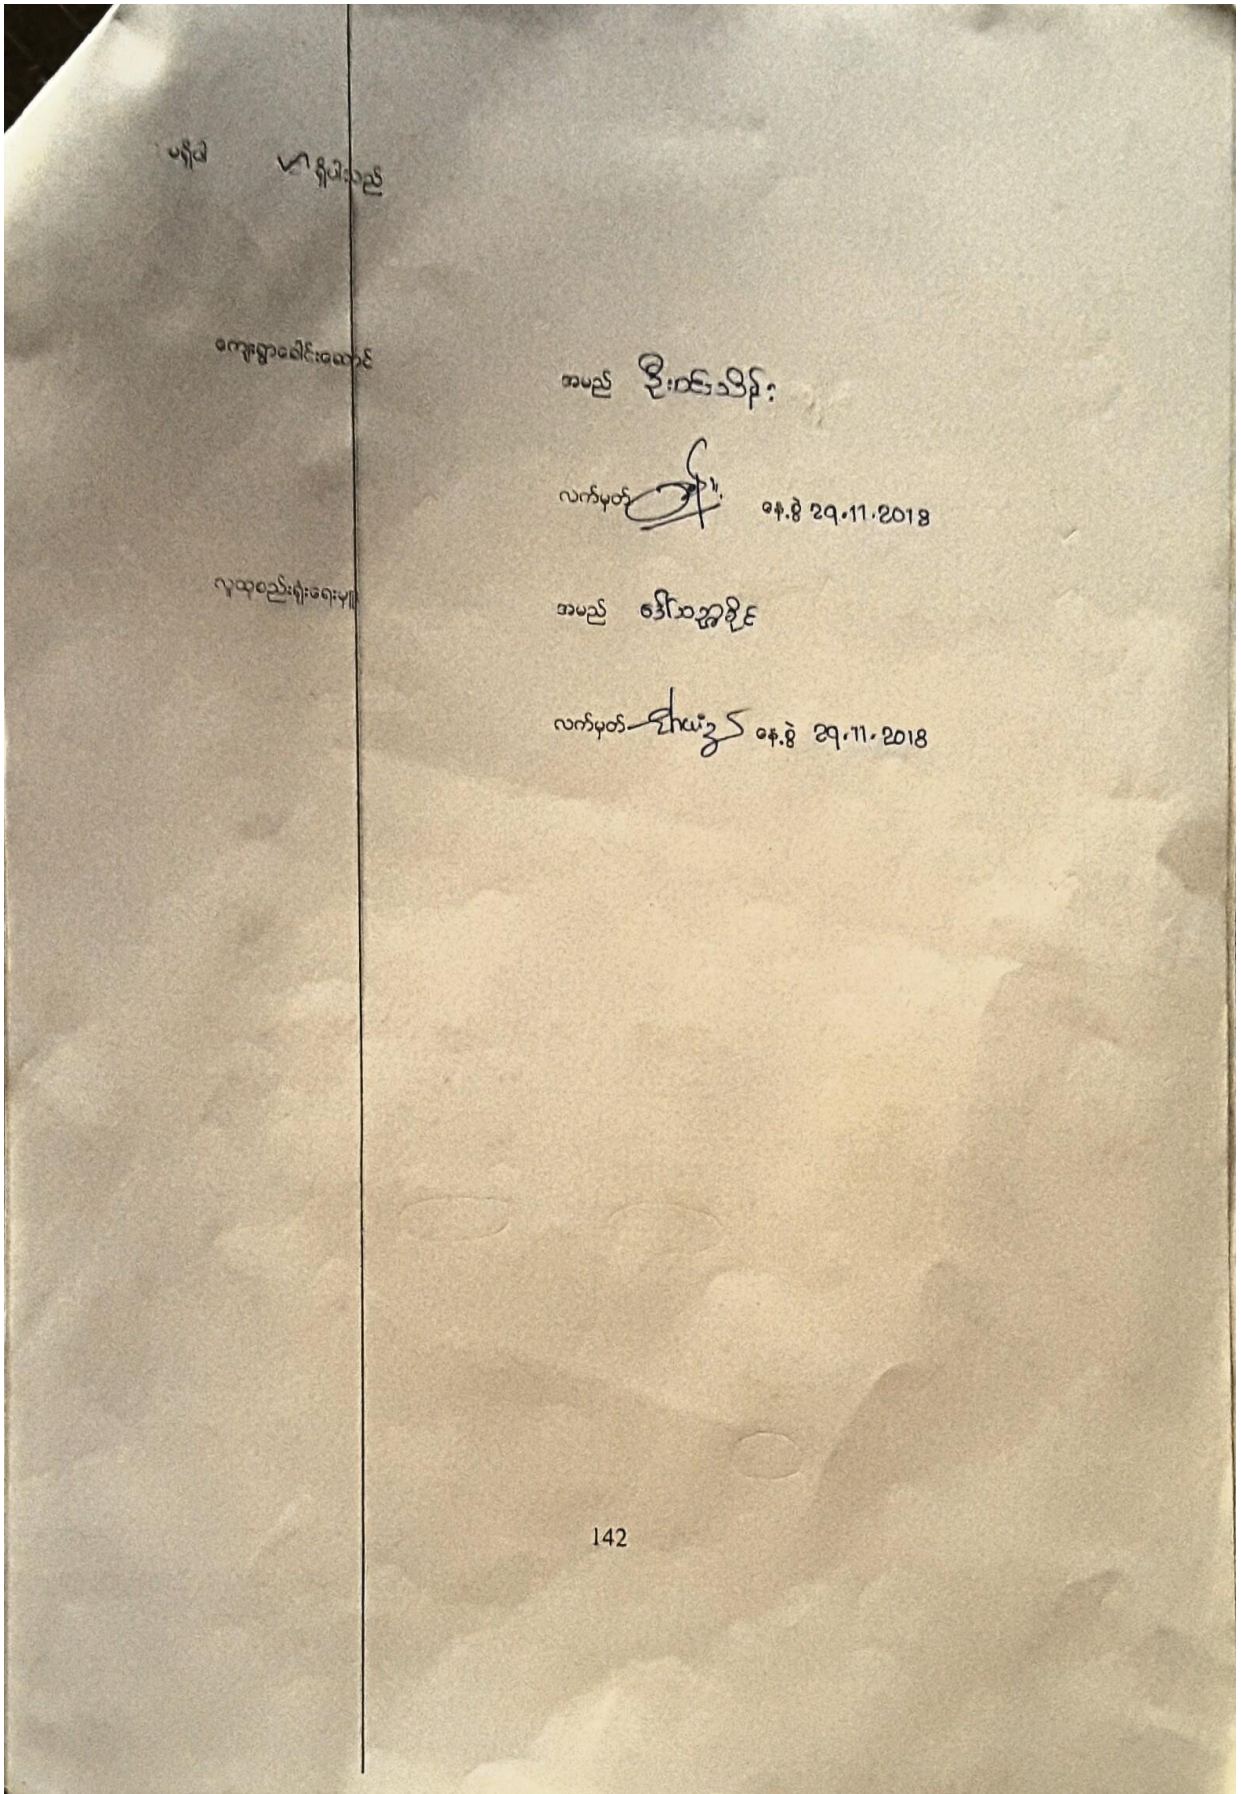 မရှိပါ ရှိပါသည်
ကျေးရွာခေါင်းဆောင်
အမည် ဦးဝင်းသိန်း
လက်မှတ် နေ့စွဲ 29.11.2018
လူထုစည်းရုံးရေးမှူး
အမည် ဒေါ်သဏ္ဍာခိုင်
လက်မှတ် နေ့စွဲ 29.11.2018
142